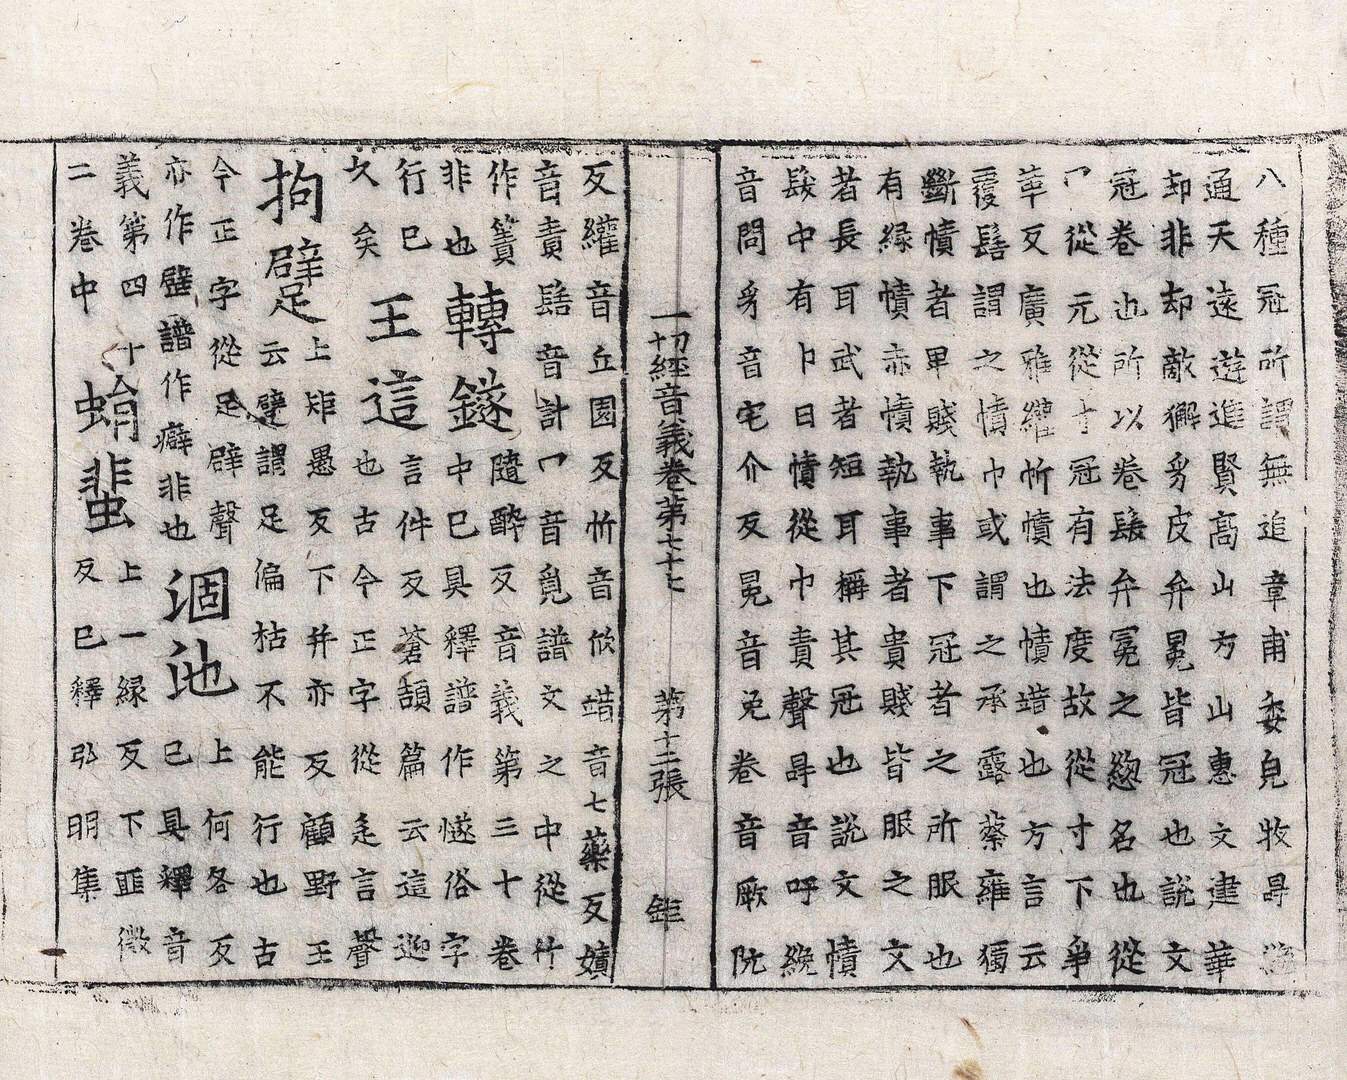 八種冠所謂無追章甫委皃牧冔
通天遠遊進賢高山方山惠文建華
却非却敵獬豸皮弁冕皆冠也說文
冠卷也所以卷髮弁冕之緫名也從
冖從元從寸冠有法度故從寸下爭
葷反廣雅纚忻幘也幘䜺也方言云
覆髻謂之幘巾或謂之承露蔡雍獨
斷幘者卑賤執事下冠者之所服也
有緣幘赤幘執事者貴賤皆服之文
者長耳武者短耳稱其冠也說文幘
髮巾有卪曰幘從巾責聲冔音呼紞
音問豸音宅介反冕音免卷音厥阮
一切經音義卷第七十七 第十二張 鉅
反纚音丘園反忻音攽䜺音七藥反嫧
音責髻音計冖音覓譜文之中從竹
作簀非也轉鐩中已具釋譜作㸂俗字
隨醉反音義第三十卷
行已久矣王這言件反蒼頡篇云這迎
也古今正字從辵言聲
拘躃上矩愚反下并亦反顧野王
云躄謂足偏枯不能行也古
今正字從足辟聲
亦作躄譜作癖非也涸池上何各反
已具釋音
義第四十
二卷中蜎蜚上一緣反下匪微
反已釋弘明集